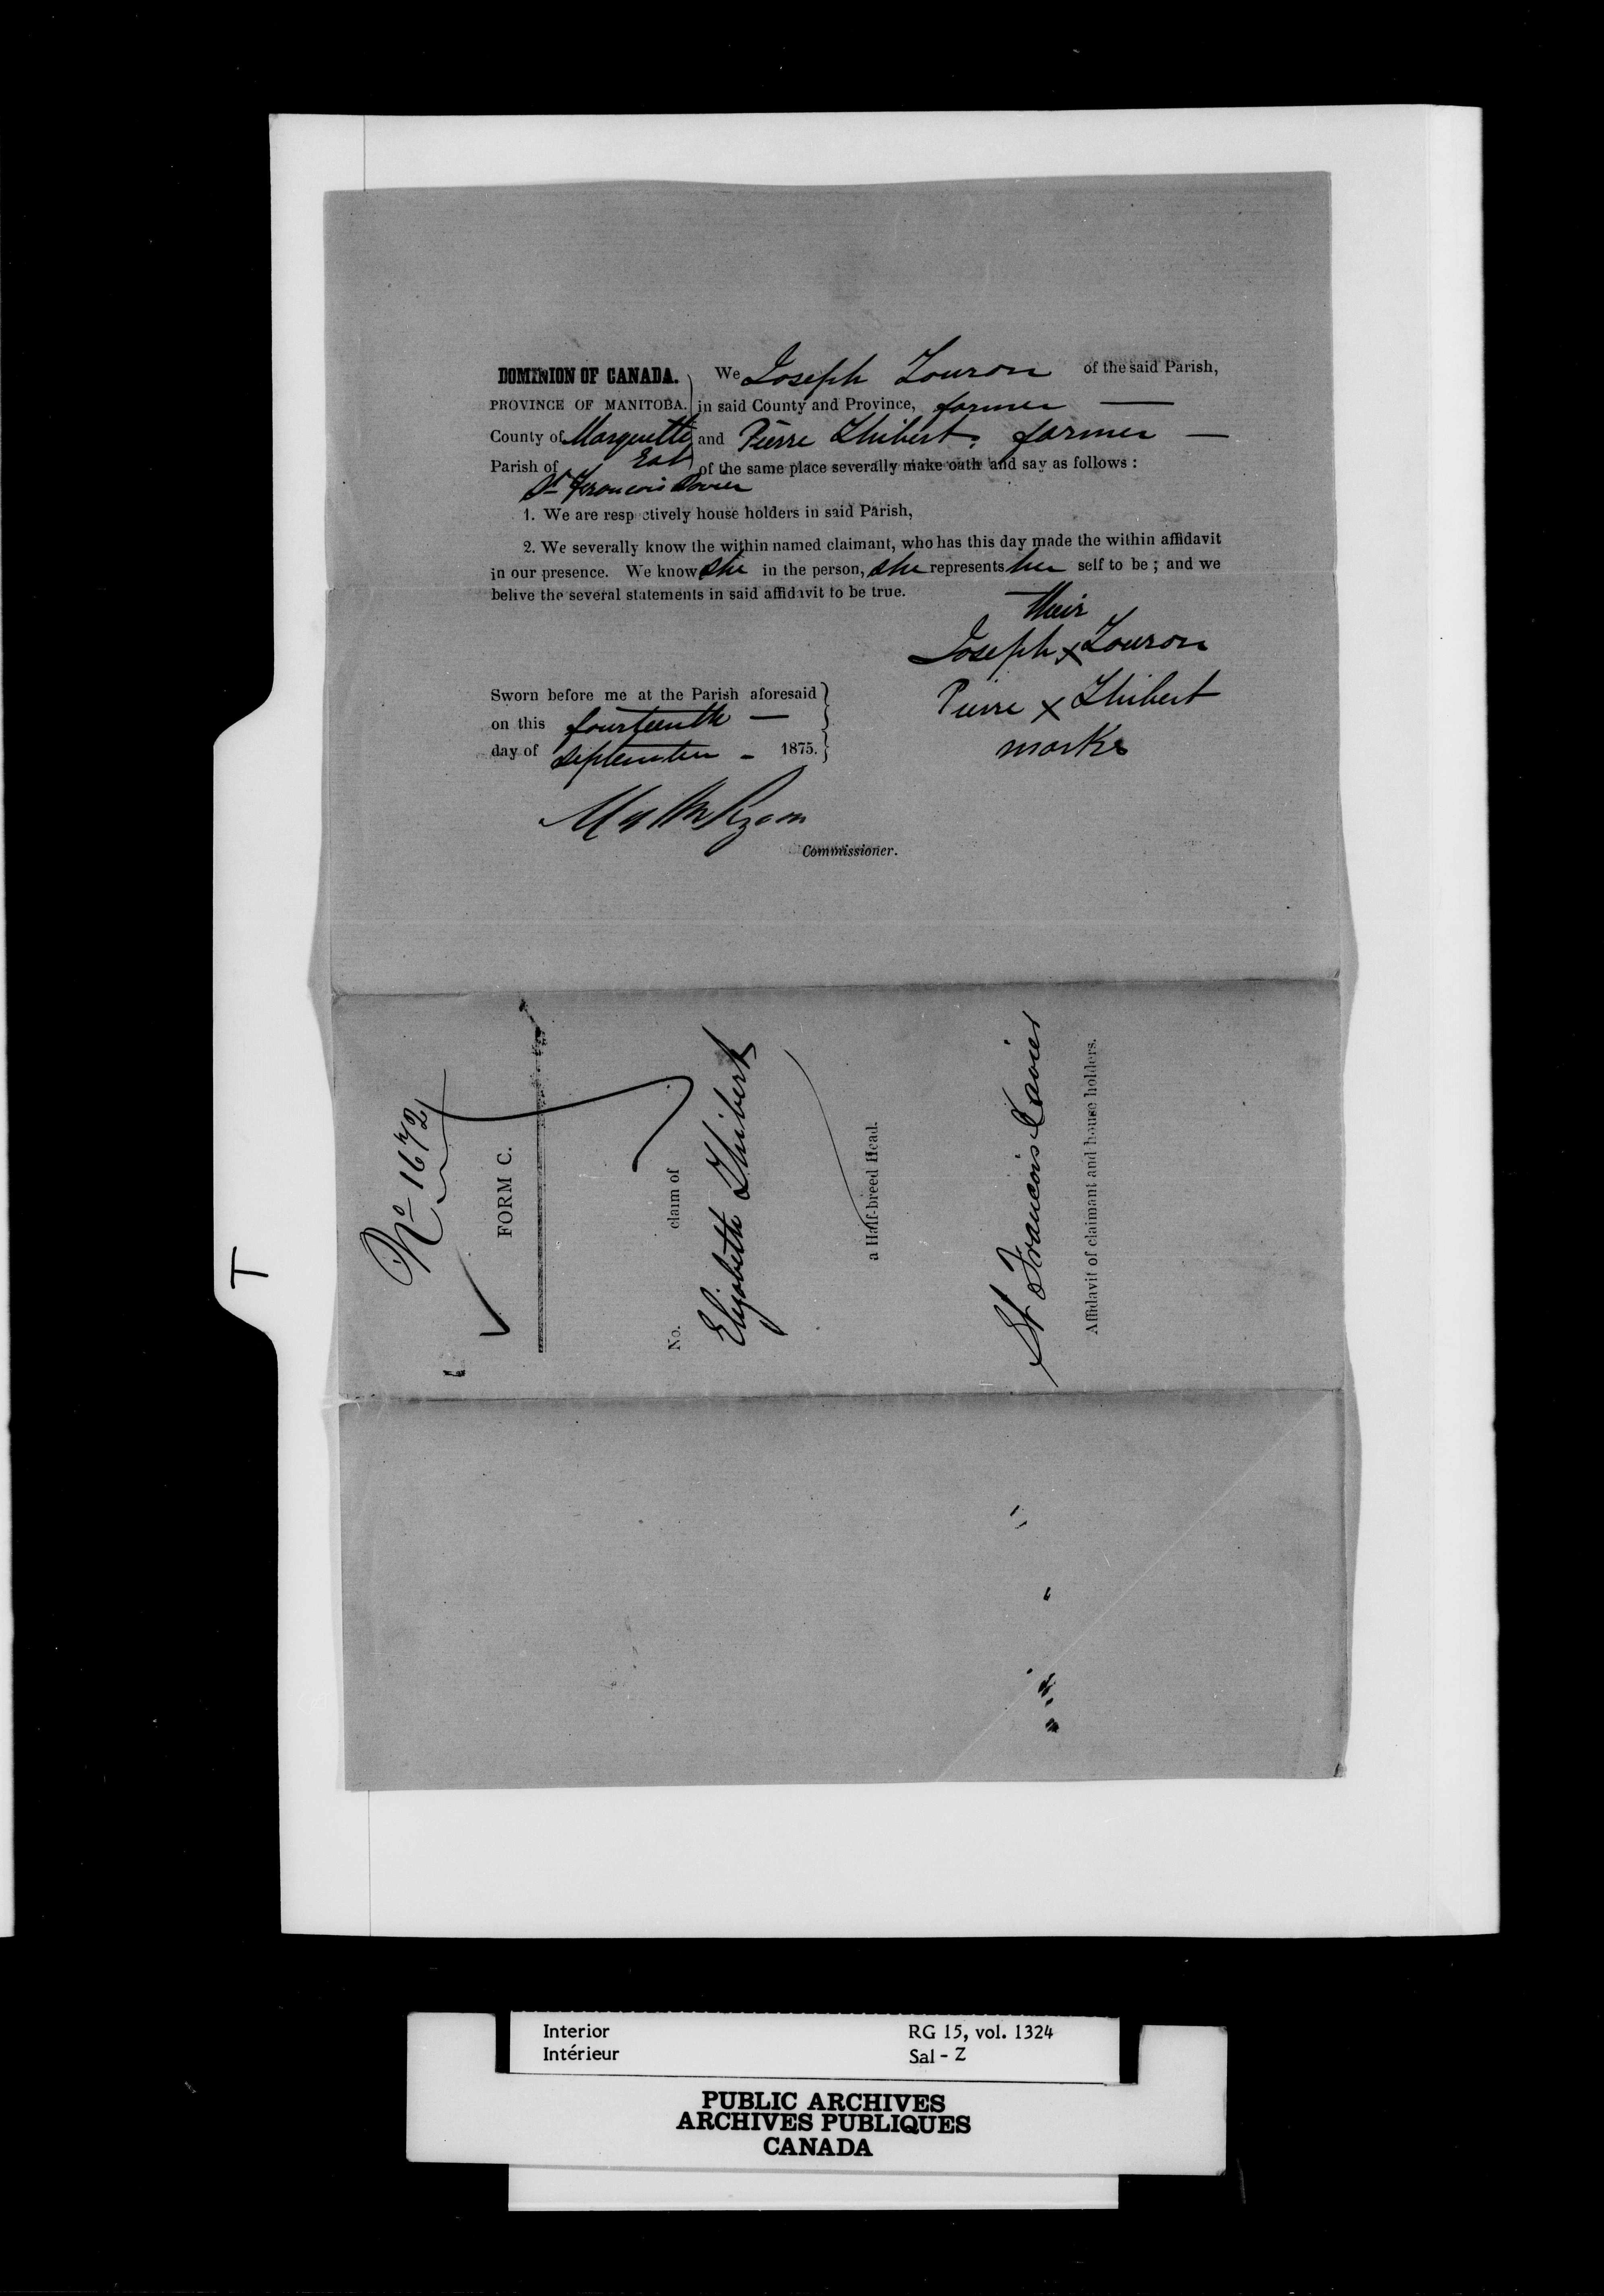 DOMINION OF CANADA. We Joseph Touron of the said Parish,
PROVINCE OF MANITOBA. in said County and Province, farmer —
County of Marquette and Pierre Thibert, farmer —
Parish of East of the same place severally make oath and say as follows :
St Francois Xavier
1. We are respectively house holders in said Parish,
2. We severally know the within named claimant, who has this day made the within affidavit
in our presence. We know she in the person, she represents her self to be ; and we
belive the several statements in said affidavit to be true.
their
Joseph x Touron
Sworn before me at the Parish aforesaid
Pierre x Thibert
on this fourteenth —
marks
day of September - 1875.
Commissioner.
No 1672
FORM C.
No. claim of
Elizabeth Thibert
a Half-breed Head.
St Francois Xavier
Affidavit of claimant and house holders.
T
Interior RG 15, vol. 1324
Intérieur Sal - Z
PUBLIC ARCHIVES
ARCHIVES PUBLIQUES
CANADA